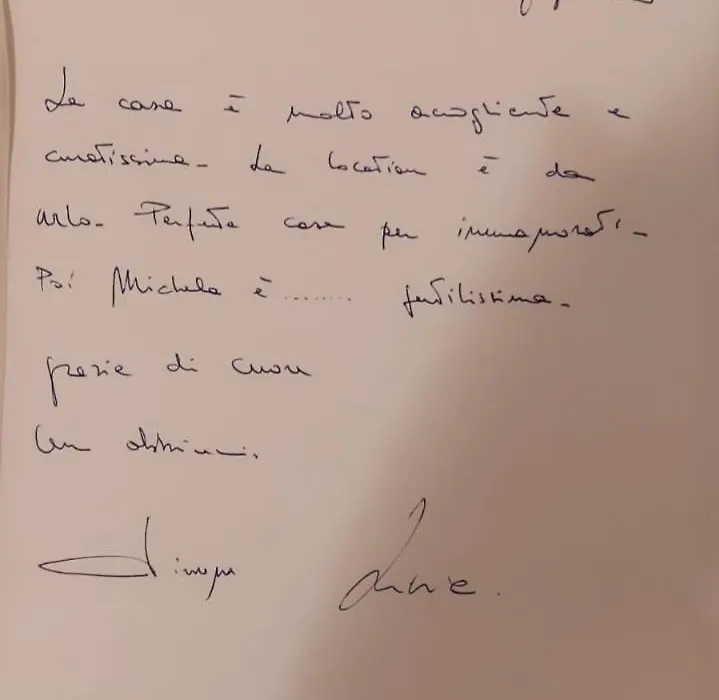 La casa è molto accogliente e
curatissima - La location è da
urlo - Perfetta casa per innamorati -
Poi Michela è ........ gentilissima -
grazie di cuore
Un abbraccio.